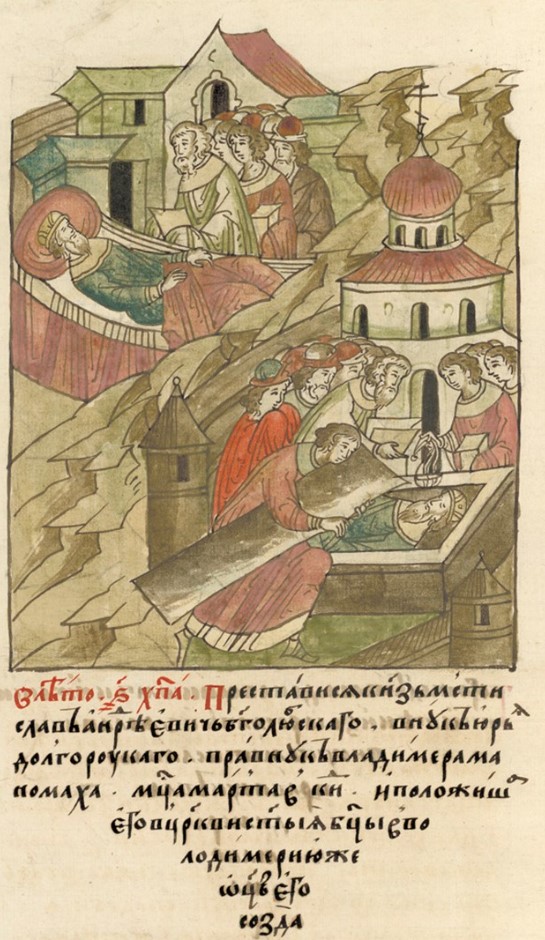 В лѣто . ҂ѕ҃ х҃п҃а Преставися кн҃зь мсти
славъ анрѣевичь бг҃олюскаго . внукъ юрья
долгорукаго . правнукъ владимера ма
номаха . мц҃а марта в к҃и . и положиша
его в цр҃кви ст҃ыя бц҃ы в во
лодимери юже
ѡц҃ъ его
созда